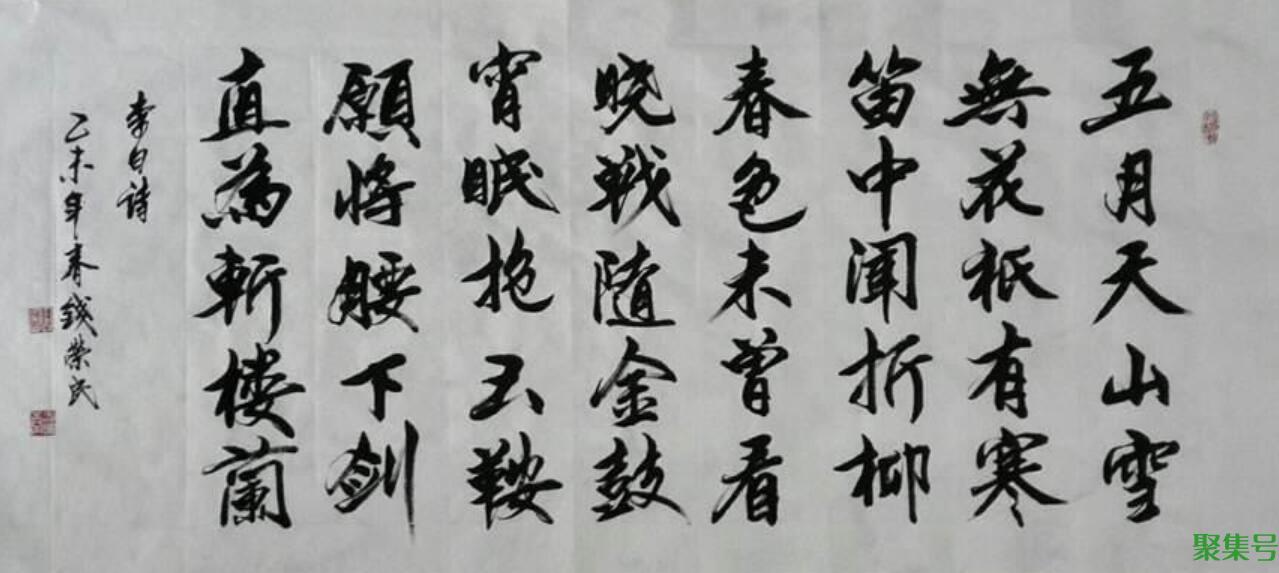 五月天山雪
無花祇有寒
笛中聞折柳
春色未曾看
晓戰随金鼓
宵眠抱玉鞍
願將腰下劍
直為斬楼蘭
李白诗
乙未年春錢荣民
聚集号